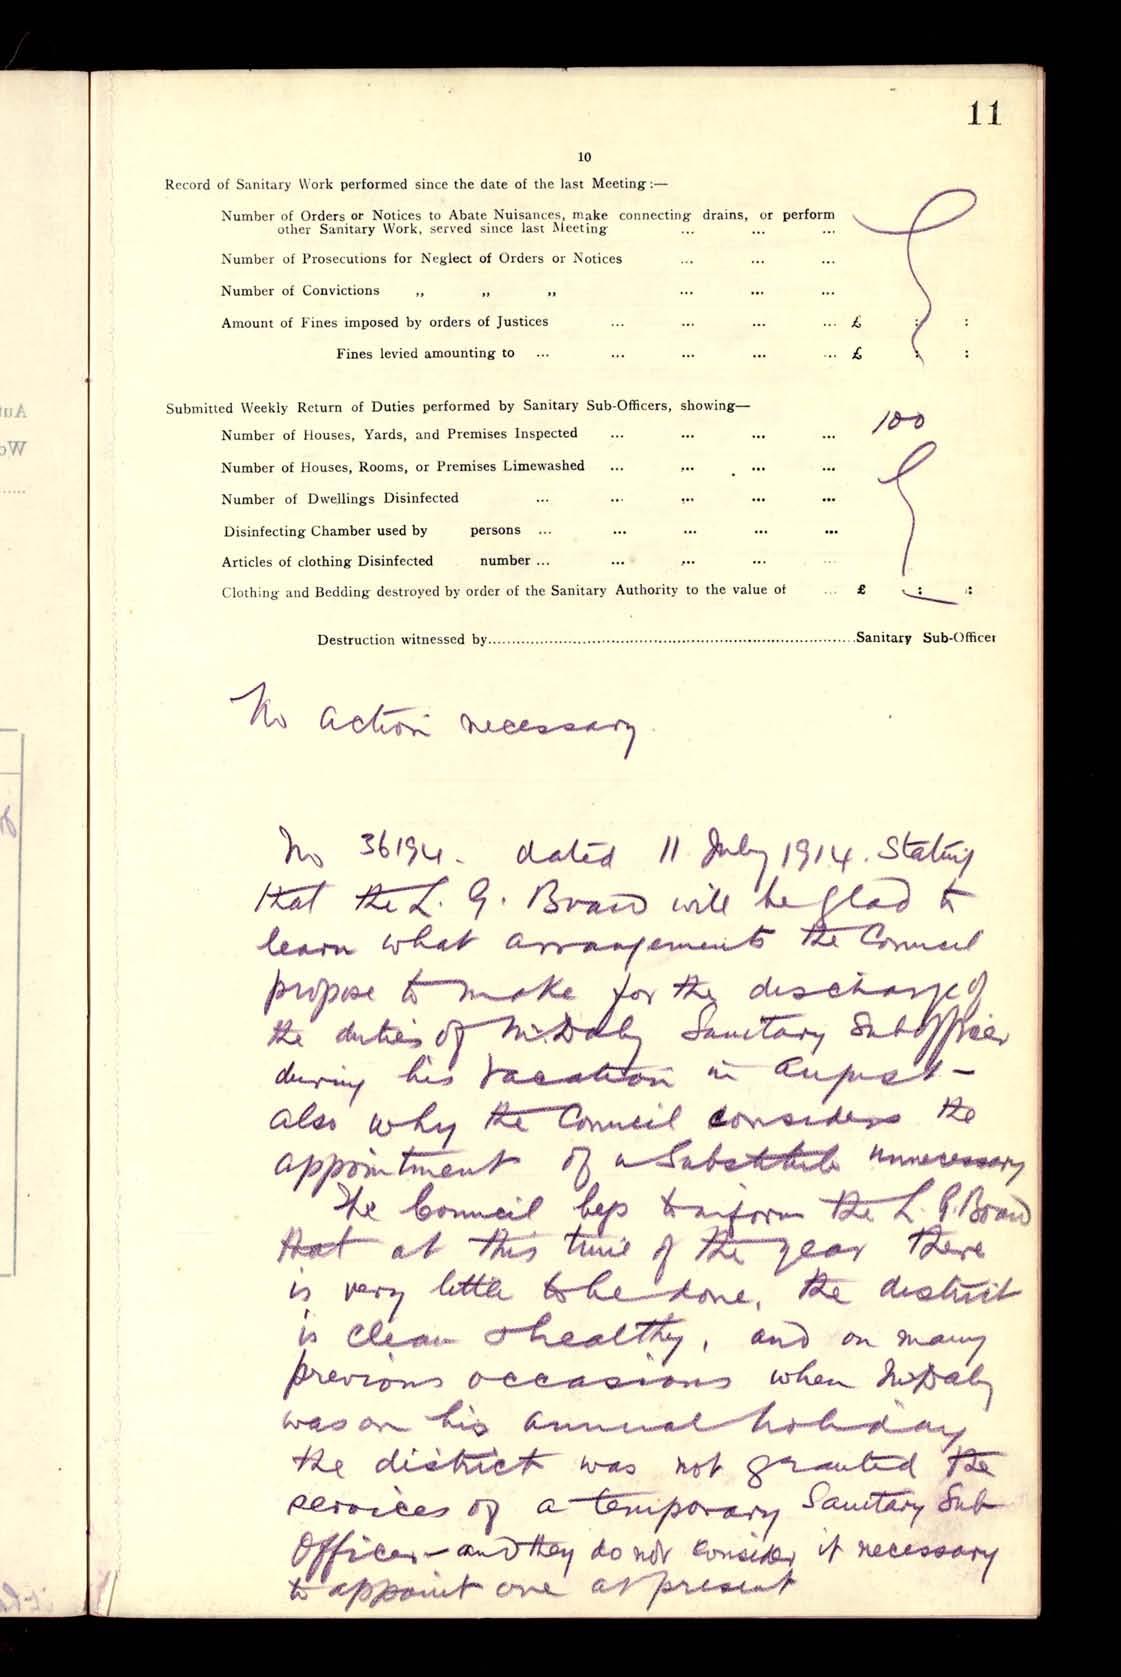 11
10
Record of Sanitary Work performed since the date of the last Meeting:—
Number of Orders or Notices to Abate Nuisances, make connecting drains, or perform
other Sanitary Work, served since last Meeting ... ... ...
Number of Prosecutions for Neglect of Orders or Notices ... ... ...
Number of Convictions ,, ,, ,, ... ... ...
Amount of Fines imposed by orders of Justices ... ... ... ... £ : :
Fines levied amounting to ... ... ... ... ... £ : :
Submitted Weekly Return of Duties performed by Sanitary Sub-Officers, showing—
Number of Houses, Yards, and Premises Inspected ... ... ... ... 100
Number of Houses, Rooms, or Premises Limewashed ... ... ... ...
Number of Dwellings Disinfected ... ... ... ... ...
Disinfecting Chamber used by persons ... ... ... ... ...
Articles of clothing Disinfected number ... ... ... ... ...
Clothing and Bedding destroyed by order of the Sanitary Authority to the value of ... £ : :
Destruction witnessed by............Sanitary Sub-Officer
No action necessary
No 36194. dated 11 July 1914. Stating
that the L. G. Board will be glad to
learn what arrangements the Council
propose to make for the discharge of
the duties of Mr. Daly Sanitary Sub officer
during his vacation in August –
also why the Council considers the
appointment of a Substitute unnecessary
The Council begs to inform the L. G. Board
that at this time of the year there
is very little to be done, the district
is clean & healthy, and on many
previous occasions when Mr Daly
was on his annual holiday
the district was not granted the
services of a temporary Sanitary Sub
Officer – and they do not consider it necessary
to appoint one at present